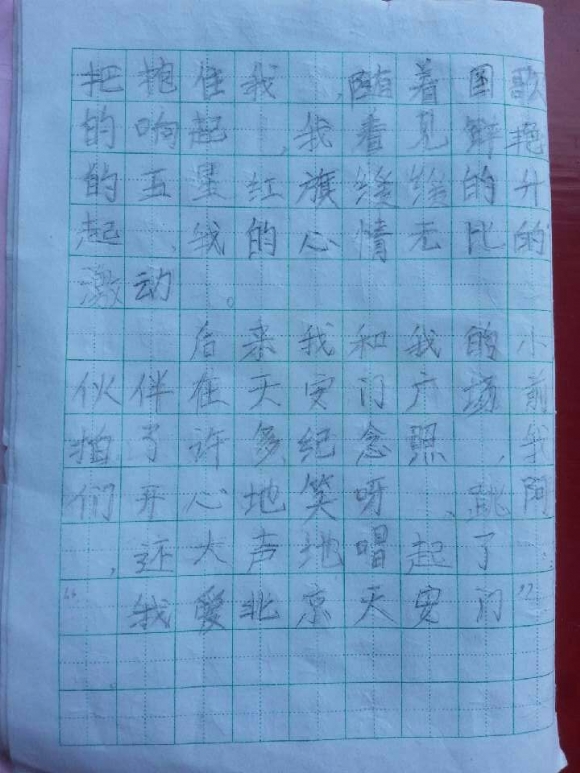 把抱住我,随着国歌
的响起,我看见鲜艳
的五星红旗缓缓的升
起,我的心情无比的
激动。
后来我和我的小
伙伴在天安门广场前
拍了许多纪念照,我
们开心地笑呀、跳啊
,还大声地唱起了:
“我爱北京天安门”